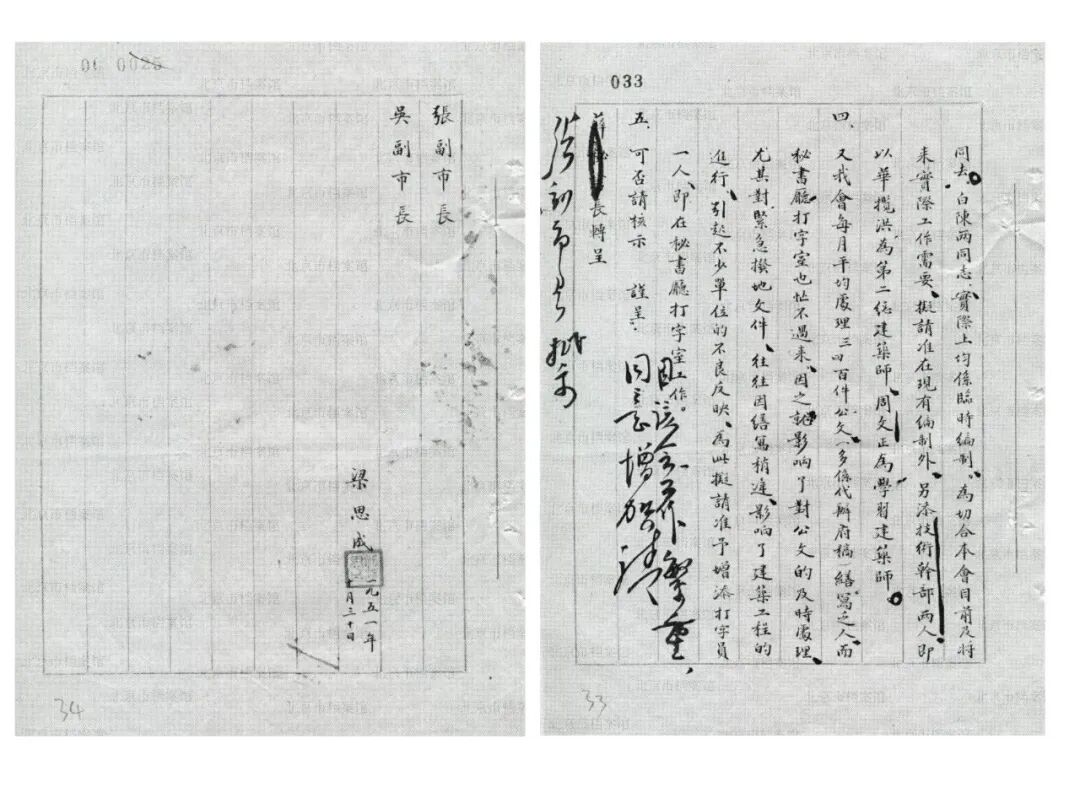 033
同去。白陳兩同志、實際上均係臨時編制、為切合本會目前及將
來實際工作需要、擬請准在現有編制外、另添技術幹部兩人、即
以華攬洪為第二總建築師、周文正為學習建築師。
四、又我會每月平均處理三四百件公文(多係代辦府稿)繕寫乏人、而
秘書廳打字室也忙不過來、因之就影响了對公文的及時處理、
尤其對緊急撥地文件、往往因繕寫稍遲、影响了建築工程的
進行、引起不少單位的不良反映、為此擬請准予增添打字員
一人、即在秘書廳打字室工作。
五、可否請核示 謹呈
長轉呈
該会工作繁重、
同意增加 請
張副市長批示
33
張副市長
吳副市長
梁思成
一九五一年
月三十日
34